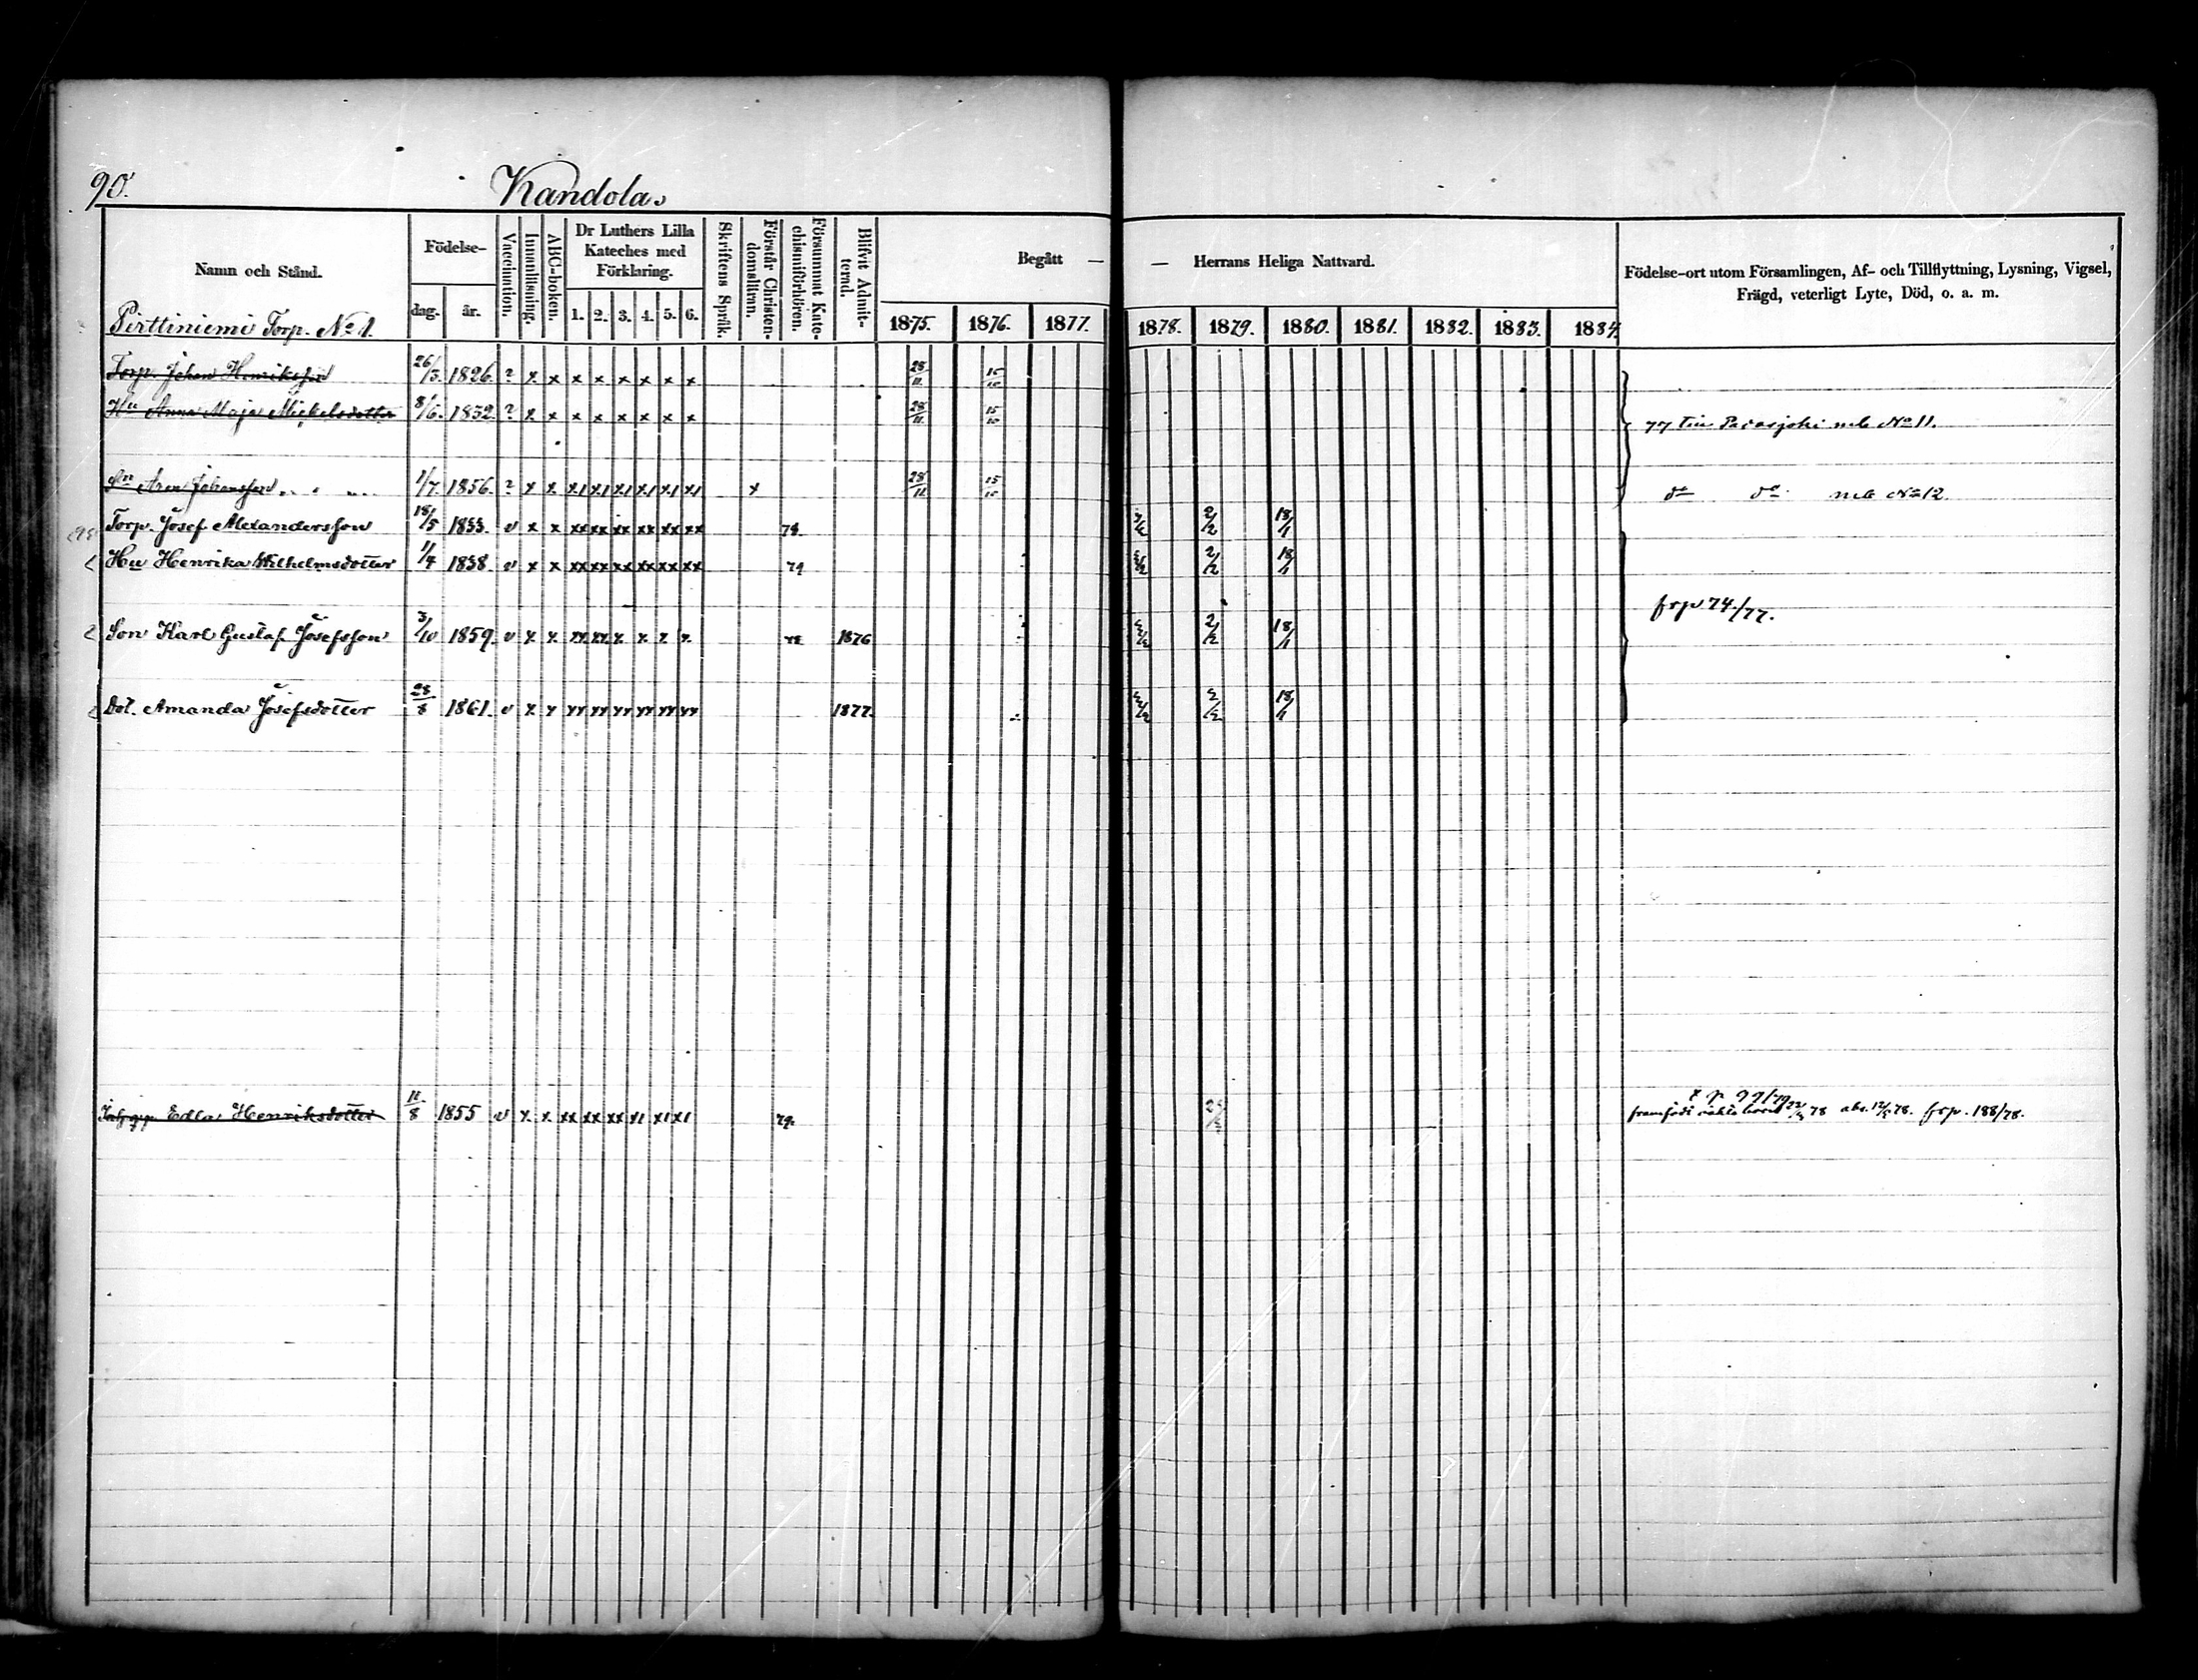 90.
Kandola.
Namn och Stånd.
Födelse-
dag. år.
Vaccination.
Innanläsning.
ABC-boken.
Dr Luthers Lilla Kateches med Förklaring.
1. 2. 3. 4. 5. 6.
Skriftens Språk.
Förstår Christendomsliran.
Försummat Katechismiförhören.
Blifvit Admitterad.
Begått — — Herrans Heliga Nattvard.
1875. 1876. 1877. 1878. 1879. 1880. 1881. 1882. 1883. 1884.
Födelse-ort utom Församlingen, Af- och Tillflyttning, Lysning, Vigsel,
Frägd, veterligt Lyte, Död, o. a. m.
Pirttiniemi Torp. No 1.
Torp. Johan Henriksson 26/3. 1826. ? x x x x x x x x 28/11. 15/10
Hu Anna Maja Mickelsdotter 8/6. 1832. ? x x x x x x x x 28/11. 15/10 77 till Parasjoki mb No 11.
Sn Johansson 1/7. 1856. ? x x x1 x1 x1 x1 x1 x1 x 28/11 15/10 do do mb No 12.
Torp. Josef Alexandersson 18/5 1833. v x x xx xx xx xx xx xx 78. 2/2 18/1
Hu Henrika Wilhelmsdotter 1/4 1838. v x x xx xx xx xx xx xx 79 2/2 18/1
frp 74/77.
Son Karl Gustaf Josefsson 3/10 1859. v x x xx xx x x x x 78 1876 2/2 18/1
Dot. Amanda Josefsdotter 28/8 1861. v x x xx xx xx xx xx xx 1877. 2/2 18/1
t p 99/79
Edla Henriksdotter 11/8 1855 v x x xx xx xx x1 x1 x1 79. 78 abs. 78. frp. 188/78.